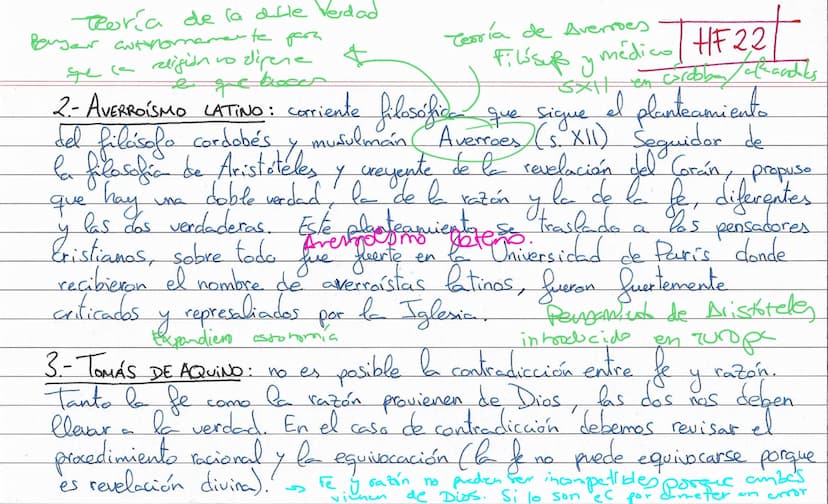 Teoría de la doble verdad
Pensar autonomamente para
que la religión no dijera
Teoría de Averroes
Filósofo y médico
SXII en córdoba/
HF22
2.- AVERROÍSMO LATINO: corriente filosófica que sigue el planteamiento
del filósofo cordobés y musulmán Averroes (s. XII) Seguidor de
la filosofía de Aristóteles y creyente de la revelación del Corán, propuso
que hay una doble verdad, la de la razón y la de la fe, diferentes
y las dos verdaderas. Este planteamiento se traslada a los pensadores
Averroísmo latino.
cristianos, sobre todo fue fuerte en la Universidad de París donde
recibieron el nombre de averroístas latinos, fueron fuertemente
criticados y represaliados por la Iglesia.
Pensamiento de Aristóteles
introducido en
autonomía
3.- TOMÁS DE AQUINO: no es posible la contradicción entre fe y razón.
Tanto la fe como la razón provienen de Dios, las dos nos deben
llevar a la verdad. En el caso de contradicción debemos revisar el
procedimiento racional y la equivocación (la fe no puede equivocarse porque
es revelación divina).
→ Fe y razón no pueden ser incompatibles porque ambas
vienen de Dios. Si lo son es por cometer un error